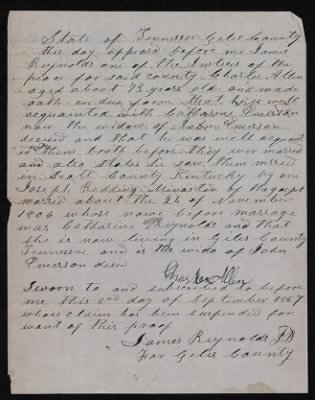 State of Tennessee Giles County
this day appeared before me James
Reynolds one of the Justice of the
peace for said county Charles Allen
aged about 73 years old and made
oath in due form that he is well
acquainted with Catharine Emerson
now the widow of John Emerson
desesed and that he was well acquan
with them boath before they was married
and also states he saw them mrred
in Scott County Kentucky by one
Joseph Redding Minaster of the gospel
married about the 25 of November
1806 whose name before marriage
was Catharine Reynolds and that
she is now living in Giles County
Tennessee and is the wido of John
Emerson desed
Charles Allen
Sworn to and subscribed to before
me this 2nd day of September 1857
whose claim has been suspended for
want of this proof
James Reynolds JP
For Giles County